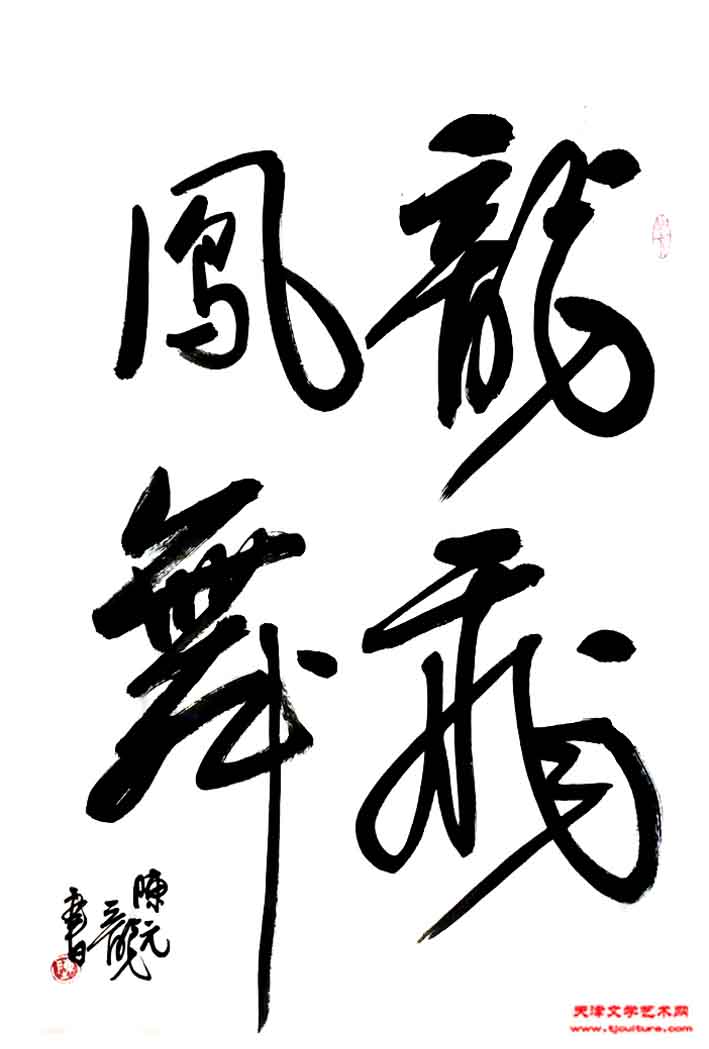 龍飛
鳳舞
陳元龍書
天津文学艺术网
www.tjculture.com